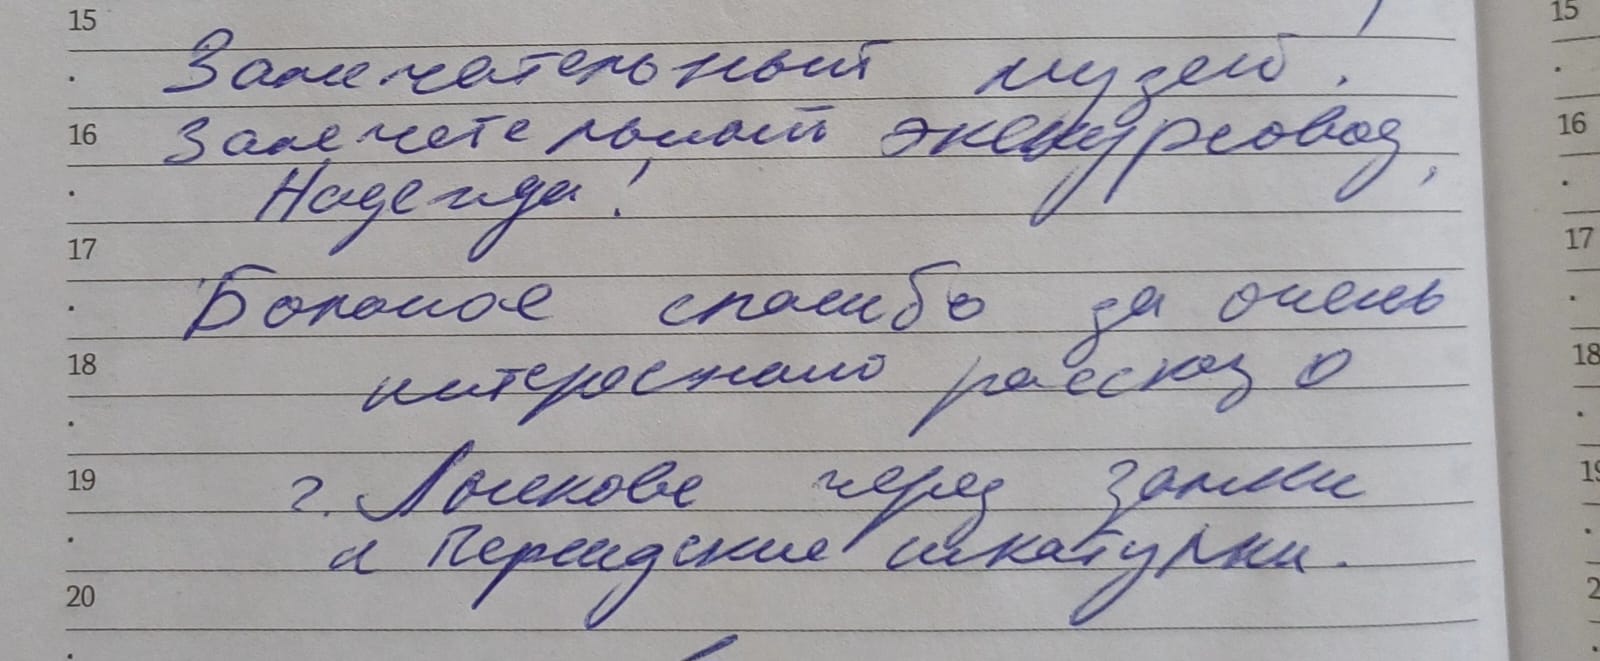 15
15
Замечательный музей!
16
16
Замечательный экскурсовод,
Надежда!
17
17
Большое спасибо за очень
18
18
интересный рассказ о
19
19
г. Лысково через замки
и Персидские шкатулки.
20
2